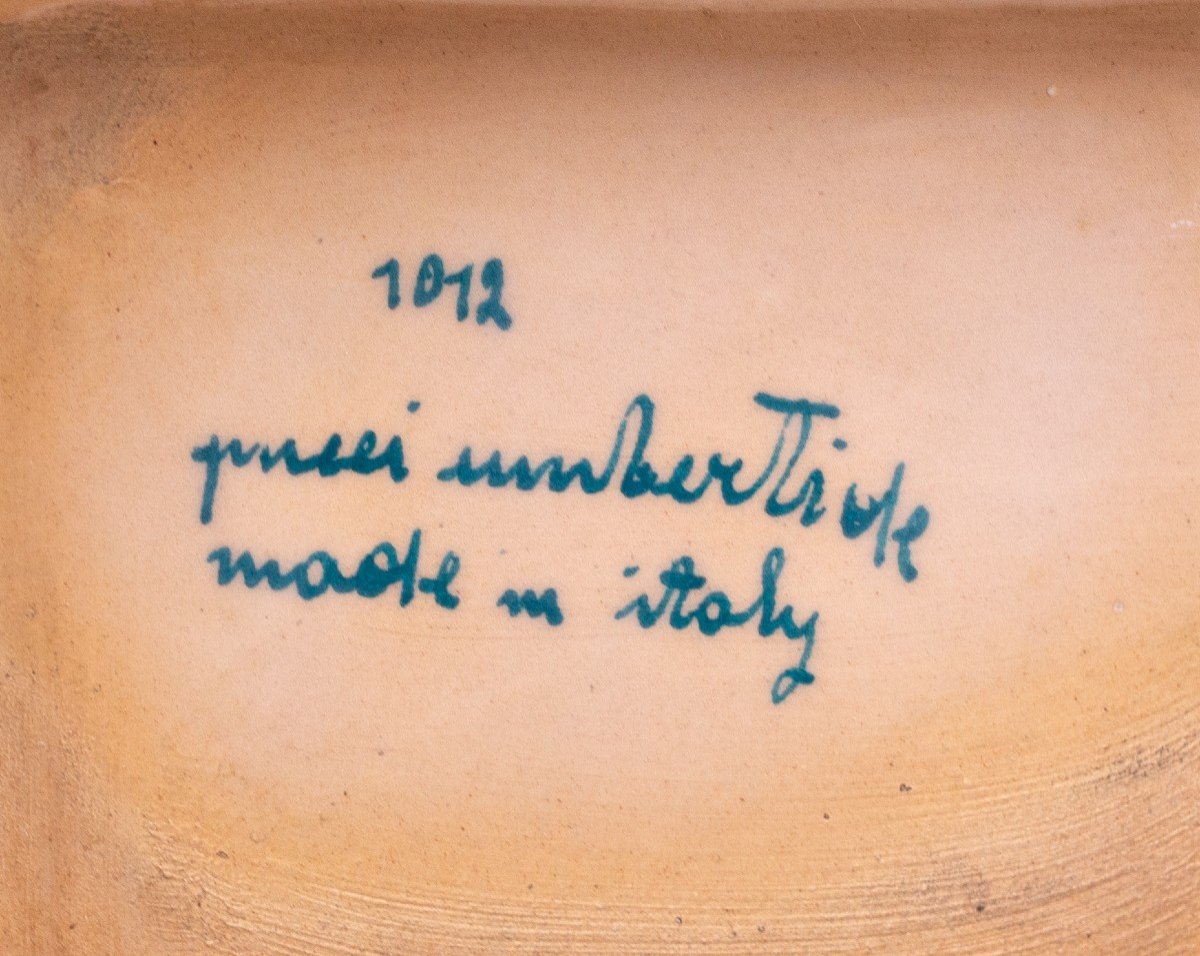 1012
pucci umbertide
made in italy